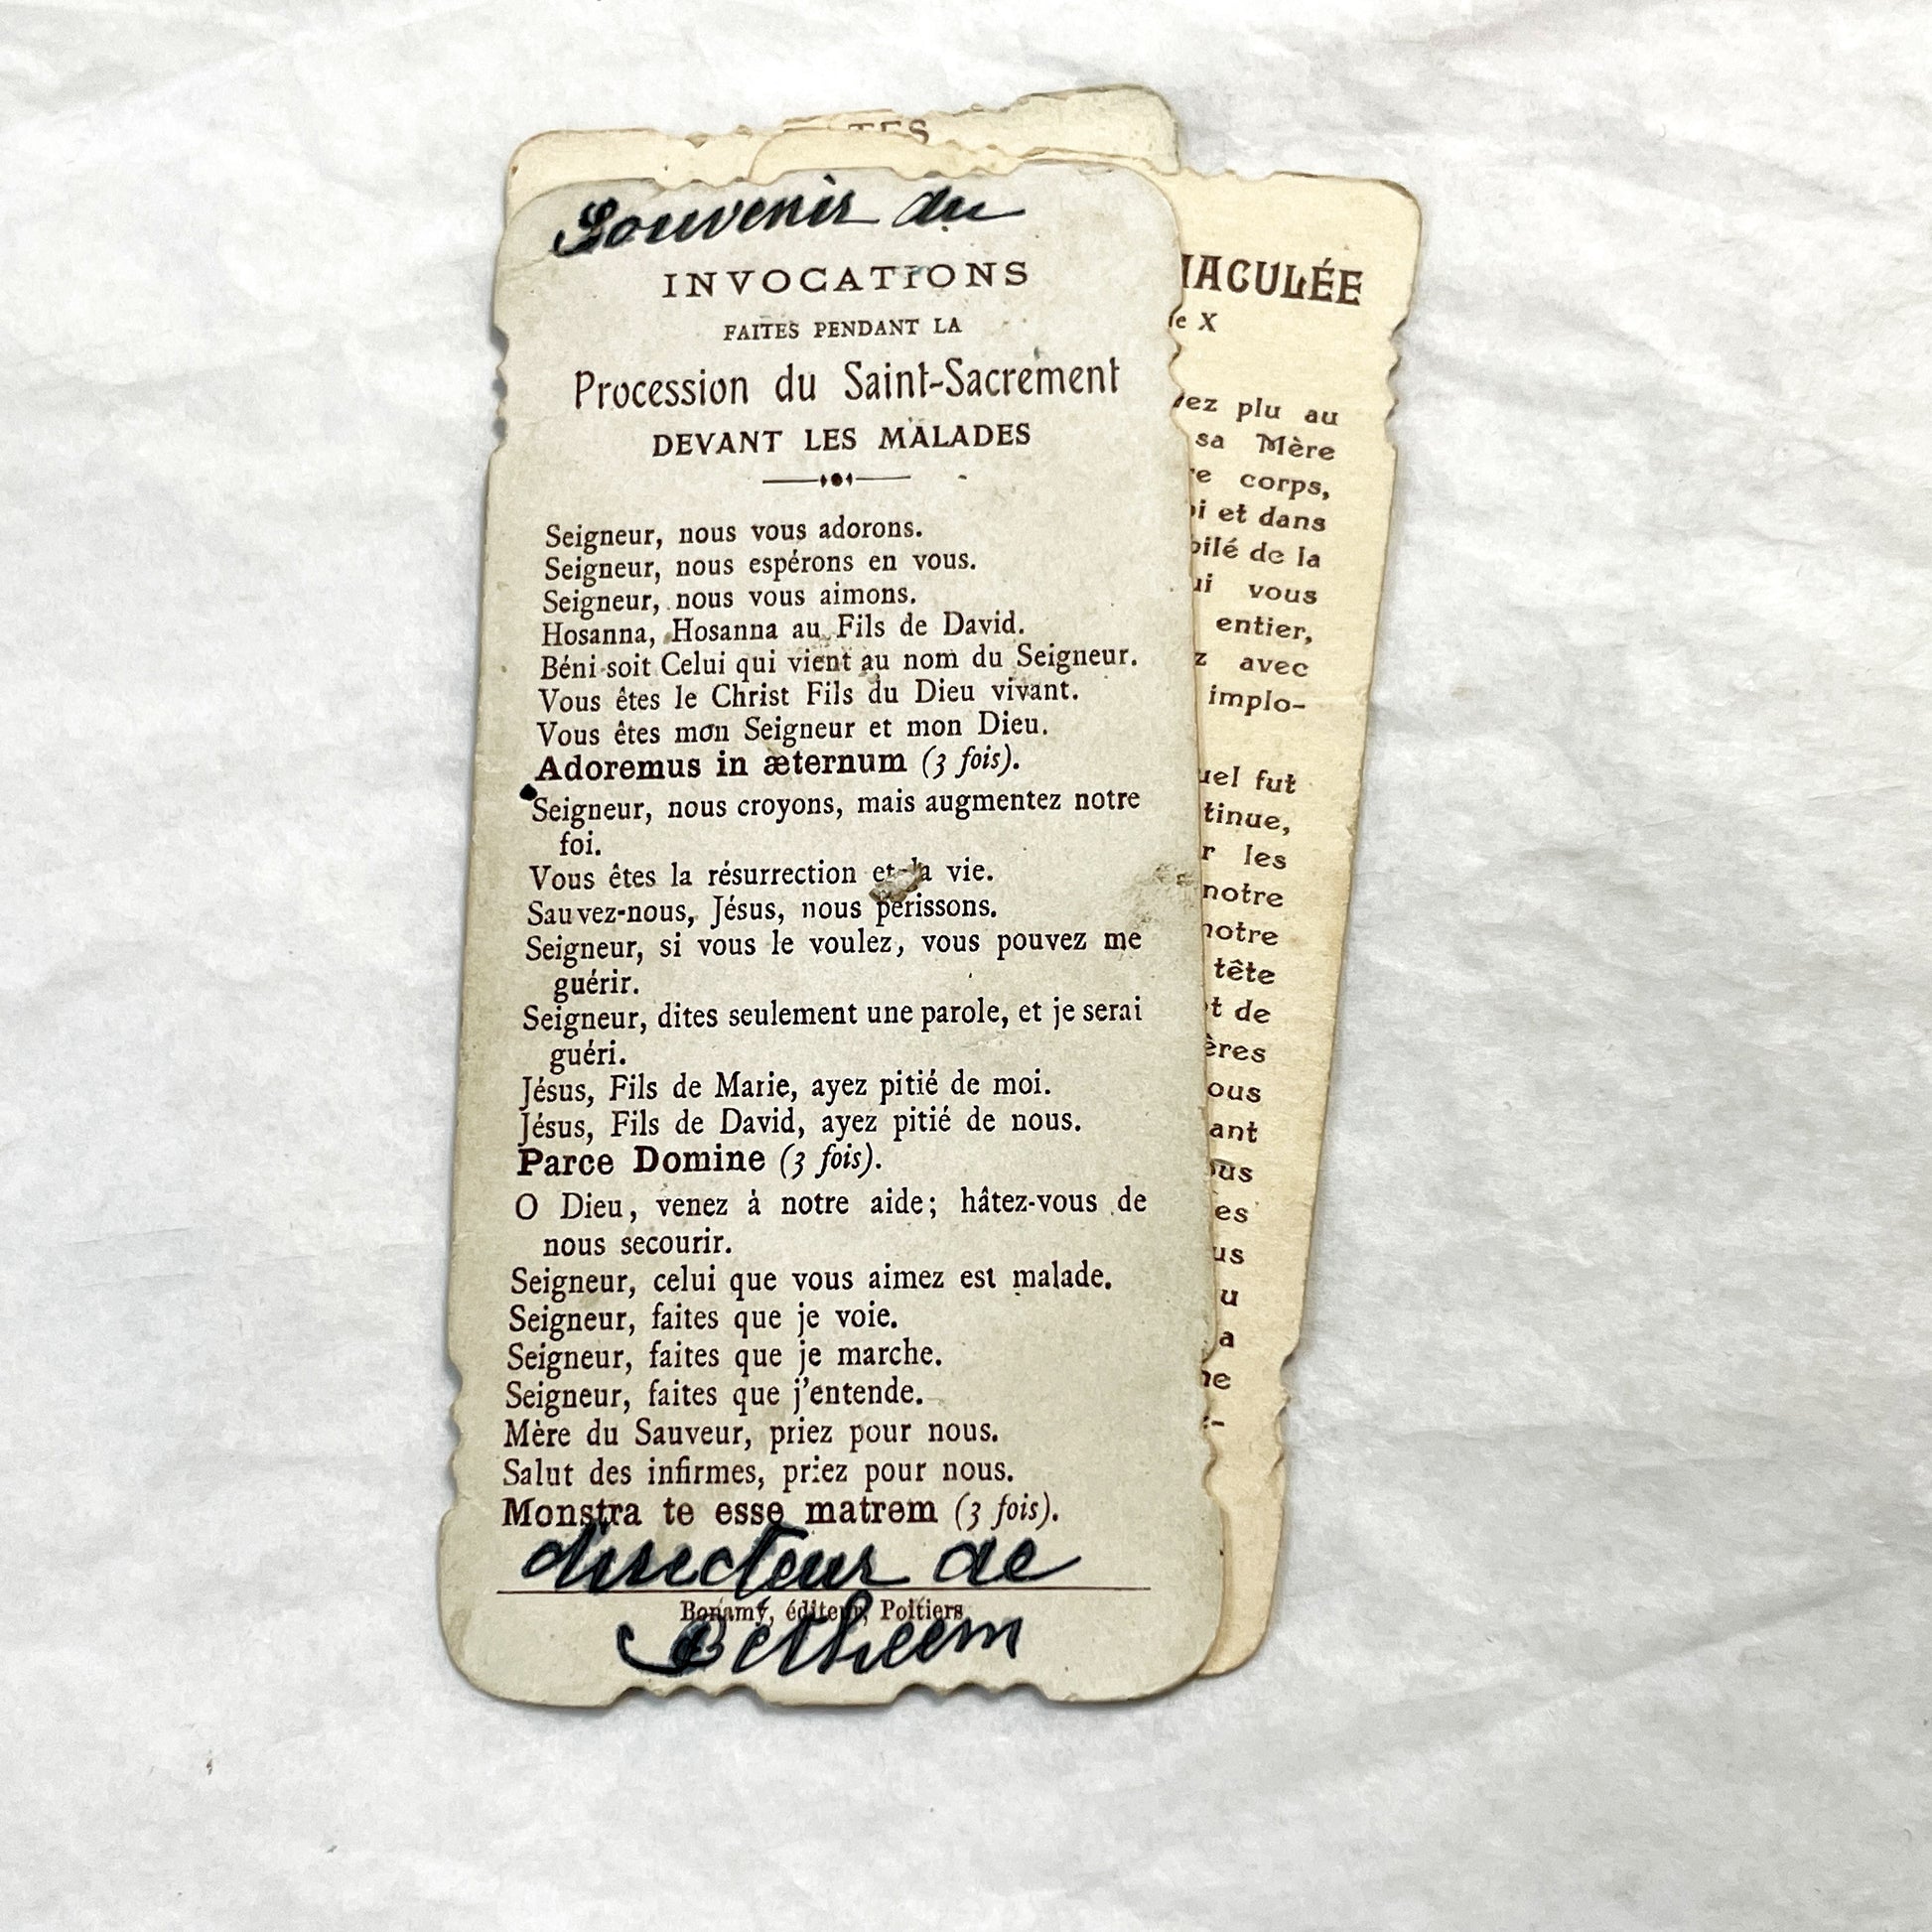 Souvenir du
INVOCATIONS
FAITES PENDANT LA
Procession du Saint-Sacrement
DEVANT LES MALADES
Seigneur, nous vous adorons.
Seigneur, nous espérons en vous.
Seigneur, nous vous aimons.
Hosanna, Hosanna au Fils de David.
Béni soit Celui qui vient au nom du Seigneur.
Vous êtes le Christ Fils du Dieu vivant.
Vous êtes mon Seigneur et mon Dieu.
Adoremus in æternum (3 fois).
Seigneur, nous croyons, mais augmentez notre
foi.
Vous êtes la résurrection et la vie.
Sauvez-nous, Jésus, nous périssons.
Seigneur, si vous le voulez, vous pouvez me
guérir.
Seigneur, dites seulement une parole, et je serai
guéri.
Jésus, Fils de Marie, ayez pitié de moi.
Jésus, Fils de David, ayez pitié de nous.
Parce Domine (3 fois).
O Dieu, venez à notre aide; hâtez-vous de
nous secourir.
Seigneur, celui que vous aimez est malade.
Seigneur, faites que je voie.
Seigneur, faites que je marche.
Seigneur, faites que j'entende.
Mère du Sauveur, priez pour nous.
Salut des infirmes, priez pour nous.
Monstra te esse matrem (3 fois).
directeur de
Bonamy, éditeur, Poitiers
MACULÉE
X
plu au
sa Mère
corps,
et dans
de la
vous
entier,
avec
implo-
fut
tinue,
les
notre
notre
tête
de
ères
ous
ant
ous
es
us
u
a
ne